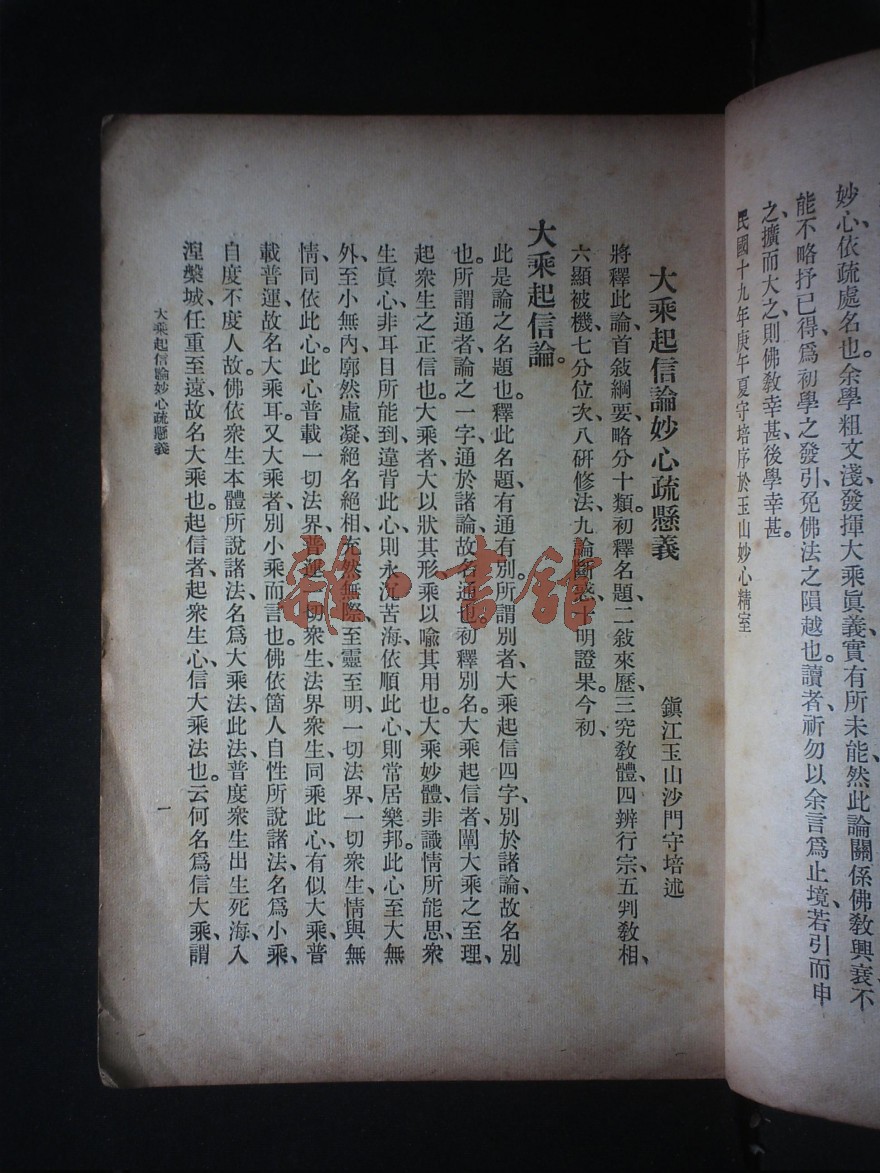 妙心依疏處名也。余學粗文淺、發揮大乘眞義、實有所未能、然此論關係佛敎興衰、不
能不略抒己得、爲初學之發引、免佛法之隕越也。讀者祈勿以余言爲止境、若引而申
之、擴而大之、則佛敎幸甚、後學幸甚。
民國十九年庚午夏守培序於玉山妙心精室
大乘起信論妙心疏懸義
鎭江玉山沙門守培述
將釋此論、首敍綱要、略分十類。初釋名題、二敍來歷、三究敎體、四辨行宗、五判敎相、
六顯被機、七分位次、八研修法、九論斷惑、十明證果。今初、
大乘起信論。
此是論之名題也。釋此名題、有通有別。所謂別者、大乘起信四字、別於諸論、故名別
也。所謂通者、論之一字、通於諸論、故名通也。初釋別名。大乘起信者、闡大乘之至理、
起衆生之正信也。大乘者、大以狀其形、乘以喩其用也。大乘妙體、非識情所能思、衆
生眞心、非耳目所能到、違背此心、則永沉苦海、依順此心、則常居樂邦。此心至大無
外、至小無內、廓然虛凝、絕名絕相、充然無際、至靈至明、一切法界、一切衆生、情與無
情、同依此心。此心普載一切法界、普運一切衆生、法界衆生、同乘此心、有似大乘、普
載普運、故名大乘耳。又大乘者、別小乘而言也。佛依箇人自性所說諸法、名爲小乘、
自度不度人故。佛依衆生本體所說諸法、名爲大乘法、此法普度衆生、出生死海、入
涅槃城、任重至遠、故名大乘也。起信者、起衆生心、信大乘法也。云何名爲信大乘、謂
大乘起信論妙心疏懸義
一
雜·書館